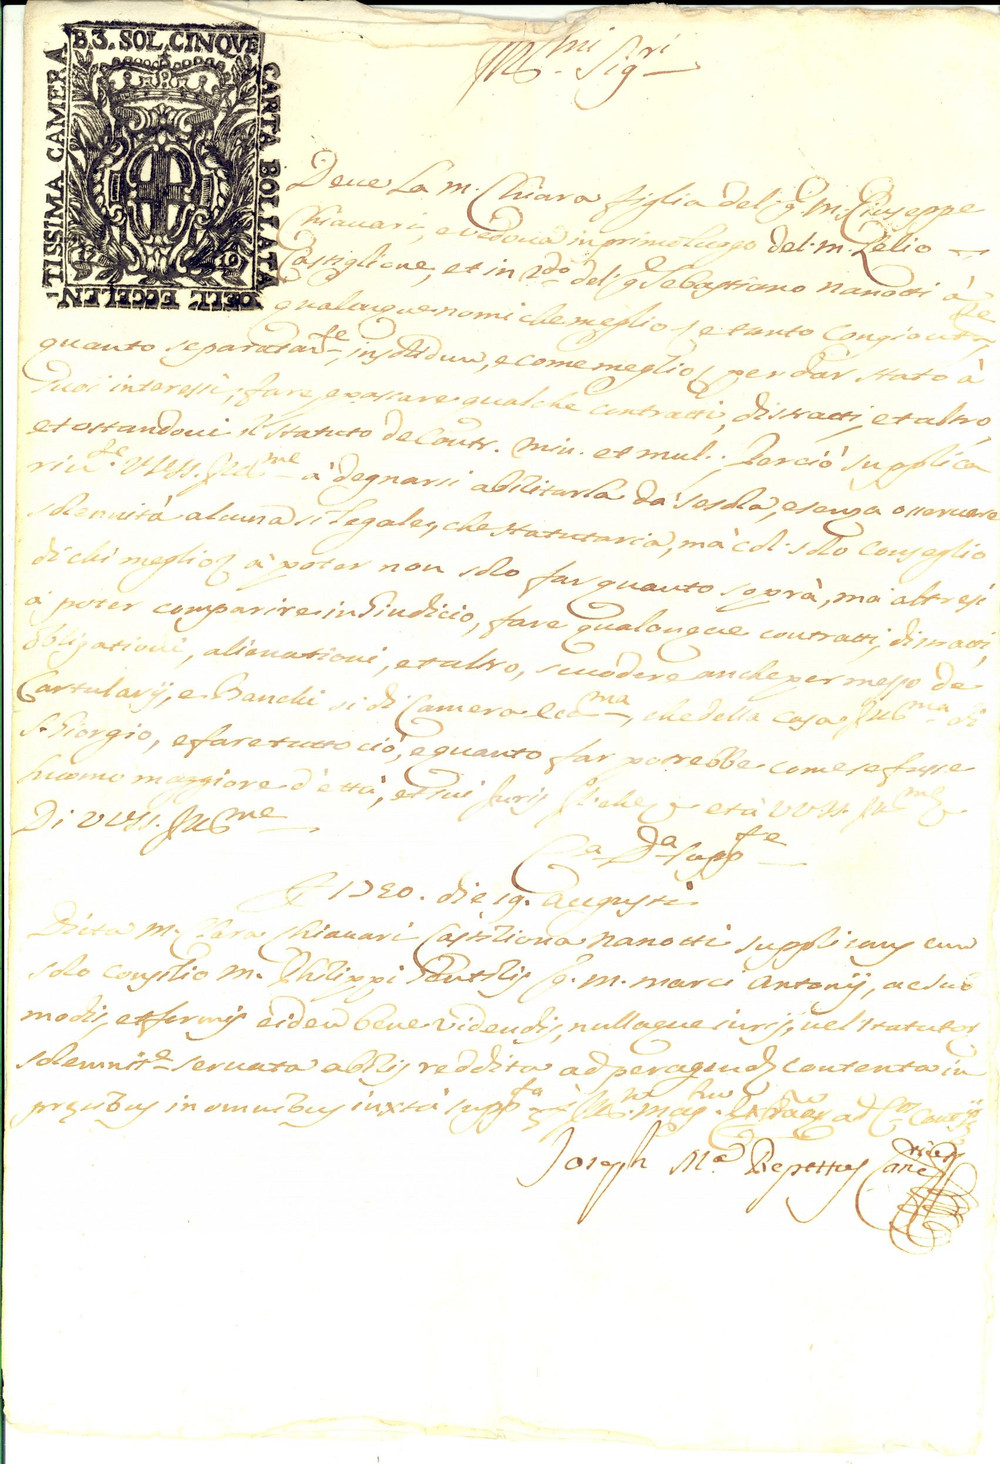 B3. SOL. CINQVE
CARTA BOLLATA
DELL' ECCELEN
TISSIMA CAMERA
17 19
Ser.mi Sig.ri
Deve La m. Chiara figlia del q. m. Giuseppe
Chiavari, e vedova in primo luogo del m. Lelio
Castiglione, et in 2do del q. Sebastiano Nanotti à
qualonque nomi che meglio, e tanto congionte,
quanto separatam.te, in solidum, e come meglio, per dar stato à
suoi interessi, fare, e passare qualche contratti, distratti, et altro,
et ostandovi il statuto de Contr. Min. et mul. Perciò supplica
VV. SS. Ser.me à degnarsi abilitarla dà se sola, e senza osservare
solennità alcuna sì legale, che statutaria, mà col solo conseglio
di chi meglio à poter non solo far quanto soprà, mà altresì
à poter comparire in Giudicio, fare qualonque contratti, distratti,
obligationi, alienationi, et altro, scuodere anche per mezzo de
Cartularij, e Banchi sì di Camera Ecc.ma, che della Casa Ill.ma di
S. Giorgio, e fare tutto ciò, e quanto far potrebbe come se fosse
huomo maggiore d'età, et sui Juris
Di VV. SS. Ser.me
La D.a Supp.te
1720. die 19. Augusti
Dicta m. Clara Chiavari Castiliona Nanotti supplicans cum
solo consilio m. Philippi Gentilis q. m. Marci Antonij, ac sub
modis, et formis eidem bene videndis, nullaque iuris, vel statutor.
solemnit.e servata abilis reddita ad peragend. contenta in
precibus in omnibus iuxta supp.ta
Joseph M.a Repettus Canc.